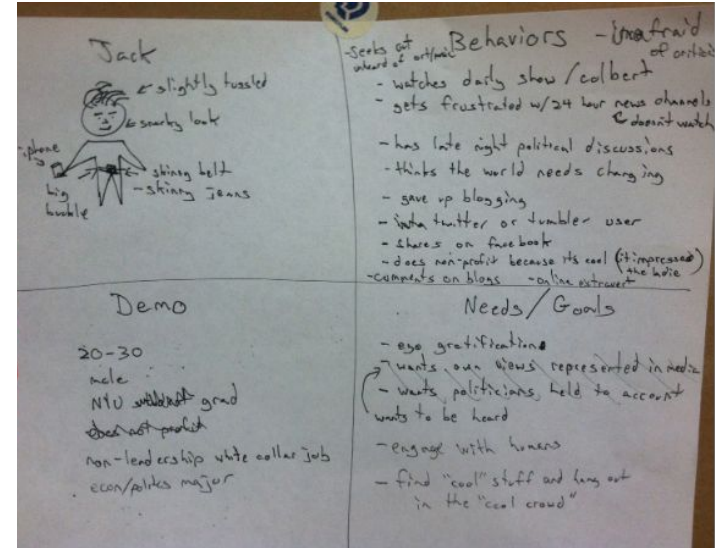 Jack
slightly tussled
snarky look
iphone
skinny belt
skinny jeans
big
Behaviors - afraid
of
- seeks out
unheard of art/music
- watches daily show / colbert
- gets frustrated w/ 24 hour news channels
doesn't watch
- has late night political discussions
- thinks the world needs changing
- gave up blogging
- twitter or tumbler user
- shares on facebook
- does non-profit because its cool (it impressed)
the
- comments on blogs - online extrovert
Demo
20-30
male
NYU grad
does not profit
non-leadership white collar job
econ/politics major
Needs/Goals
- ego gratification
- wants own views represented in media
- wants politicians held to account
wants to be heard
- engage with humans
- find "cool" stuff and hang out
in the "cool crowd"